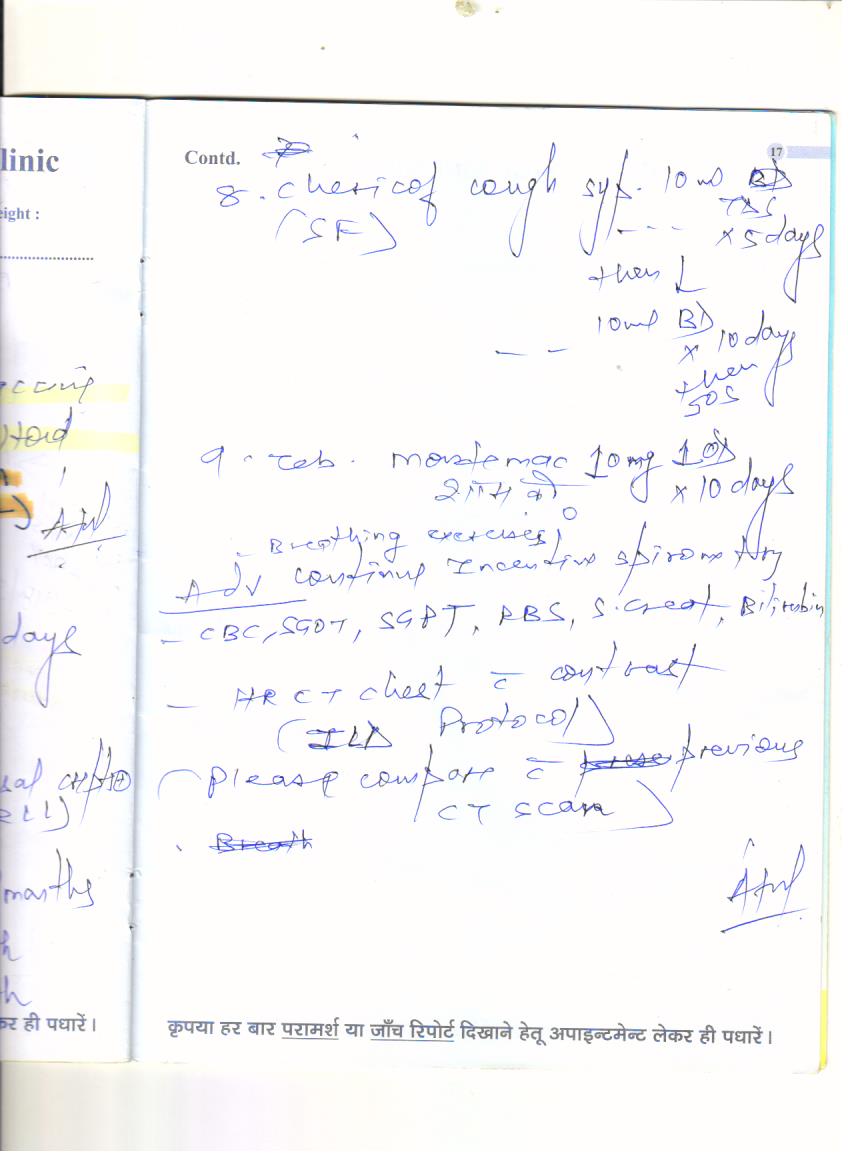 linic
eight :
days
months
Contd.
17
8. Chericof cough syp. 10 ml BD
TDS
(SF) --- x 5 days
then ↓
10ml BD
-- x 10 days
then
SOS
9. Tab. Montemac 10mg 1 OD
शाम को x 10 days
- Breathing exercises
Adv Continue Incentive spirometry
- CBC, SGOT, SGPT, RBS, S. Creat, Bilirubin
- HRCT Chest c̄ contrast
(ILD Protocol)
(Please compare c̄ previous
CT scan)
Breath
कर ही पधारें।
कृपया हर बार परामर्श या जाँच रिपोर्ट दिखाने हेतू अपाइन्टमेन्ट लेकर ही पधारें।